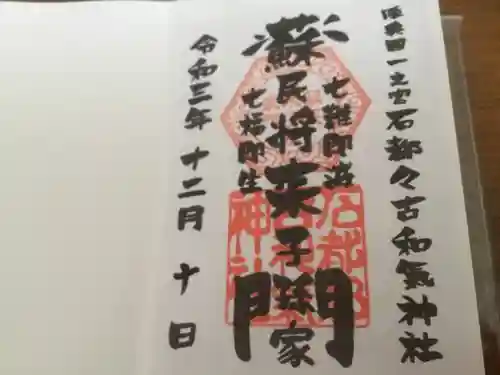 陸奥国一之宮石都々古和氣神社
七難即滅
蘇民将来子孫家門
七福即生
令和三年十二月十日